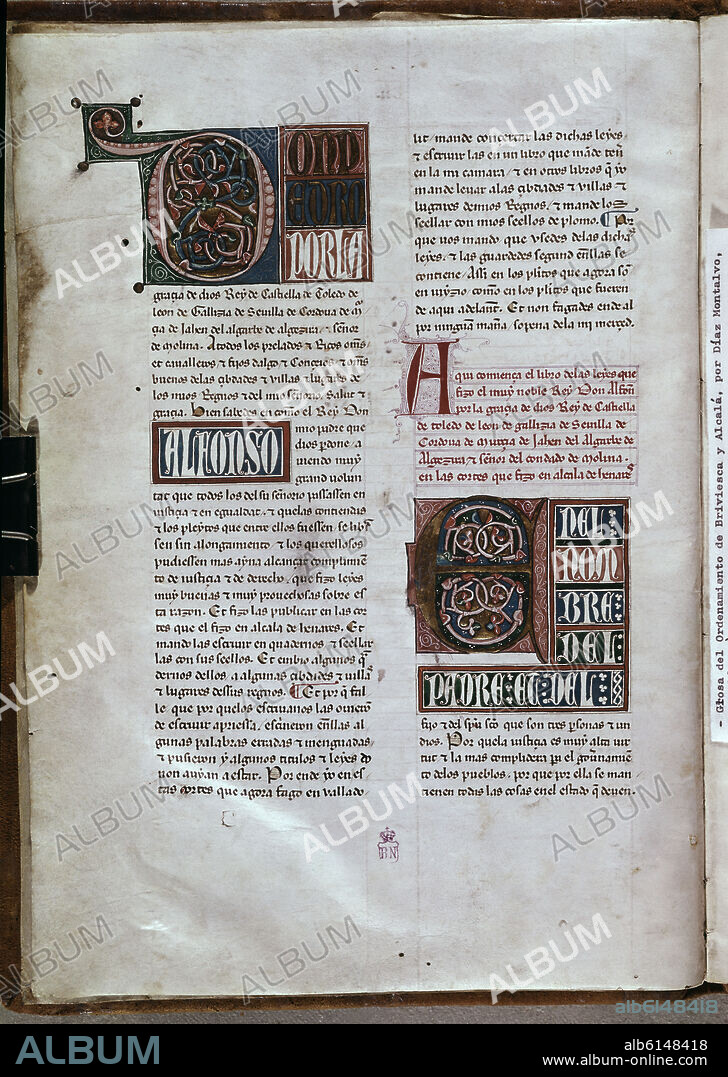 DON
PEDRO
POR LA
gracia de dios Rey de Castiella de Toledo de
leon de Gallizia de Seuilla de Cordoua de
çia de Jahen del algarbe de algezira / & señor
de molina. A todos los prelados & Ricos
et caualleros & fijos dalgo & Conceios &
buenos delas çibdades & villas & lugares de
los mios Regnos & del mio señorio. Salut &
gracia. Bien sabedes en como el Rey Don
ALFONSO
mio padre que
dios perdone / a
uiendo muy
grand volun
tat que todos los del su señorio passassen en
iusticia & en egualdat / & quelas contiendas
& los pleytos que entre ellos fuessen / se
sen sin alongamiento / & los querellosos
pudiessen mas ayna alcançar complimien
to de iusticia & de derecho / que fizo leyes
muy buenas & muy prouechosas sobre es
ta razon. Et fizo las publicar en las cor
tes que el fizo en alcala de henares. Et
mando las escriuir en quadernos & seellar
las con sus seellos. Et enbio algunos
dernos dellos a algunas çibdades & villas
& lugares dessus regnos. Et por que fa
lle que por quelos escriuanos las ouieron
de escriuir apriessa / escriuieron enellas al
gunas palabras erradas & menguadas /
& pusieron y algunos titulos & leyes do
non auyan a estar. Por ende yo en es
tas cortes que agora fago en vallado
lit / mande concertar las dichas leyes /
& escriuir las en un libro que mande
en la mi camara / & en otros libros que yo
mande leuar alas çibdades & villas &
lugares de mios Regnos / & mande los
seellar con mios seellos de plomo. Por
que uos mando que vsedes delas dichas
leyes / & las guardedes segund enellas se
contiene / Assi en los pleitos que agora son
en iuyzio como en los pleitos que fueren
de aqui adelante. Et non fagades ende al
por ninguna manera / so pena dela mi merced.
Aqui comiença el libro delas leyes que
fizo el muy noble Rey Don Alfonso
por la gracia de dios Rey de Castiella
de toledo de leon de gallizia de Seuilla de
Cordoua de murcia de Jahen del Algarbe de
Algezira & señor del condado de molina.
en las cortes que fizo en alcala de henares.
EN EL
NOM
BRE
DEL
PADRE: ET DEL:
fijo & del spu sco que son tres personas & un
dios. Por quela iusticia es muy alta uir
tut & la mas complidera pa el gouernamien
to delos pueblos / por que por ella se man
tienen todas las cosas enel estado que deuen.
BN
- Glosa del Ordenamiento de Briviesca y Alcalá, por Díaz Montalvo,
ALBUM
alb6148418
ALBUM
alb6148418
www.album-online.com